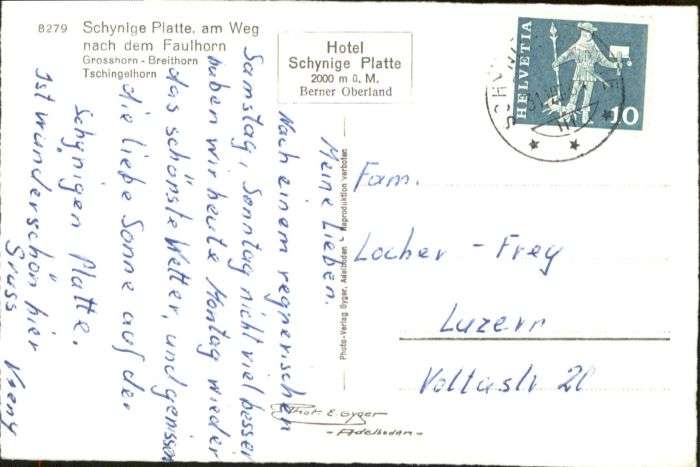 8279 Schynige Platte, am Weg
nach dem Faulhorn
Grosshorn - Breithorn
Tschingelhorn
Hotel
Schynige Platte
2000 m ü. M.
Berner Oberland
HELVETIA
10
Meine Lieben.
Nach einem regnerischen
Samstag, Sonntag nicht viel besser
haben wir heute Montag wieder
das schönste Wetter, und geniessen
die liebe Sonne auf der
Schynigen Platte.
Ist wunderschön hier
Gruss Vreny
Photo-Verlag Gyger, Adelboden - Reproduktion verboten
Fam.
Locher - Frey
Luzern
Voltastr 20
Phot. E. Gyger
- Adelboden -